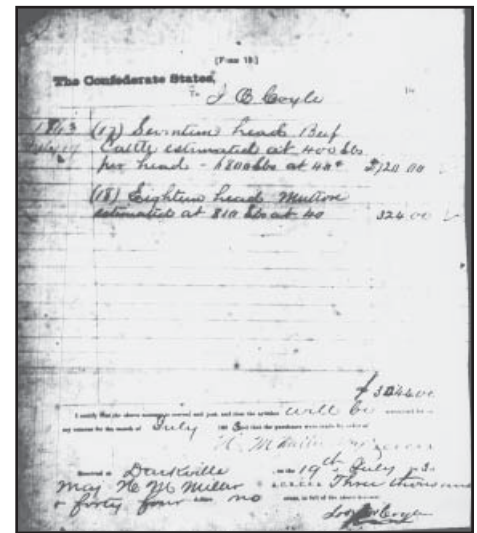 (Form 18)
The Confederate States,
To J C Coyle Dr
1863
July 19
(17) Seventeen head Beef
Cattle estimated at 400 lbs
per head - 6800 lbs at 40¢ 2720 00
(18) Eighteen head Mutton
estimated at 810 lbs at 40 324 00
$3044 00
I certify that the above account is correct and just, and that the articles will be accounted for
my account for the month of July 186 3 and that the purchases were made by order of
H. M Miller
Received at Darkville on the 19th July 3
Maj H M Miller Three thousand
& forty four dollars no cents, in full of the above account